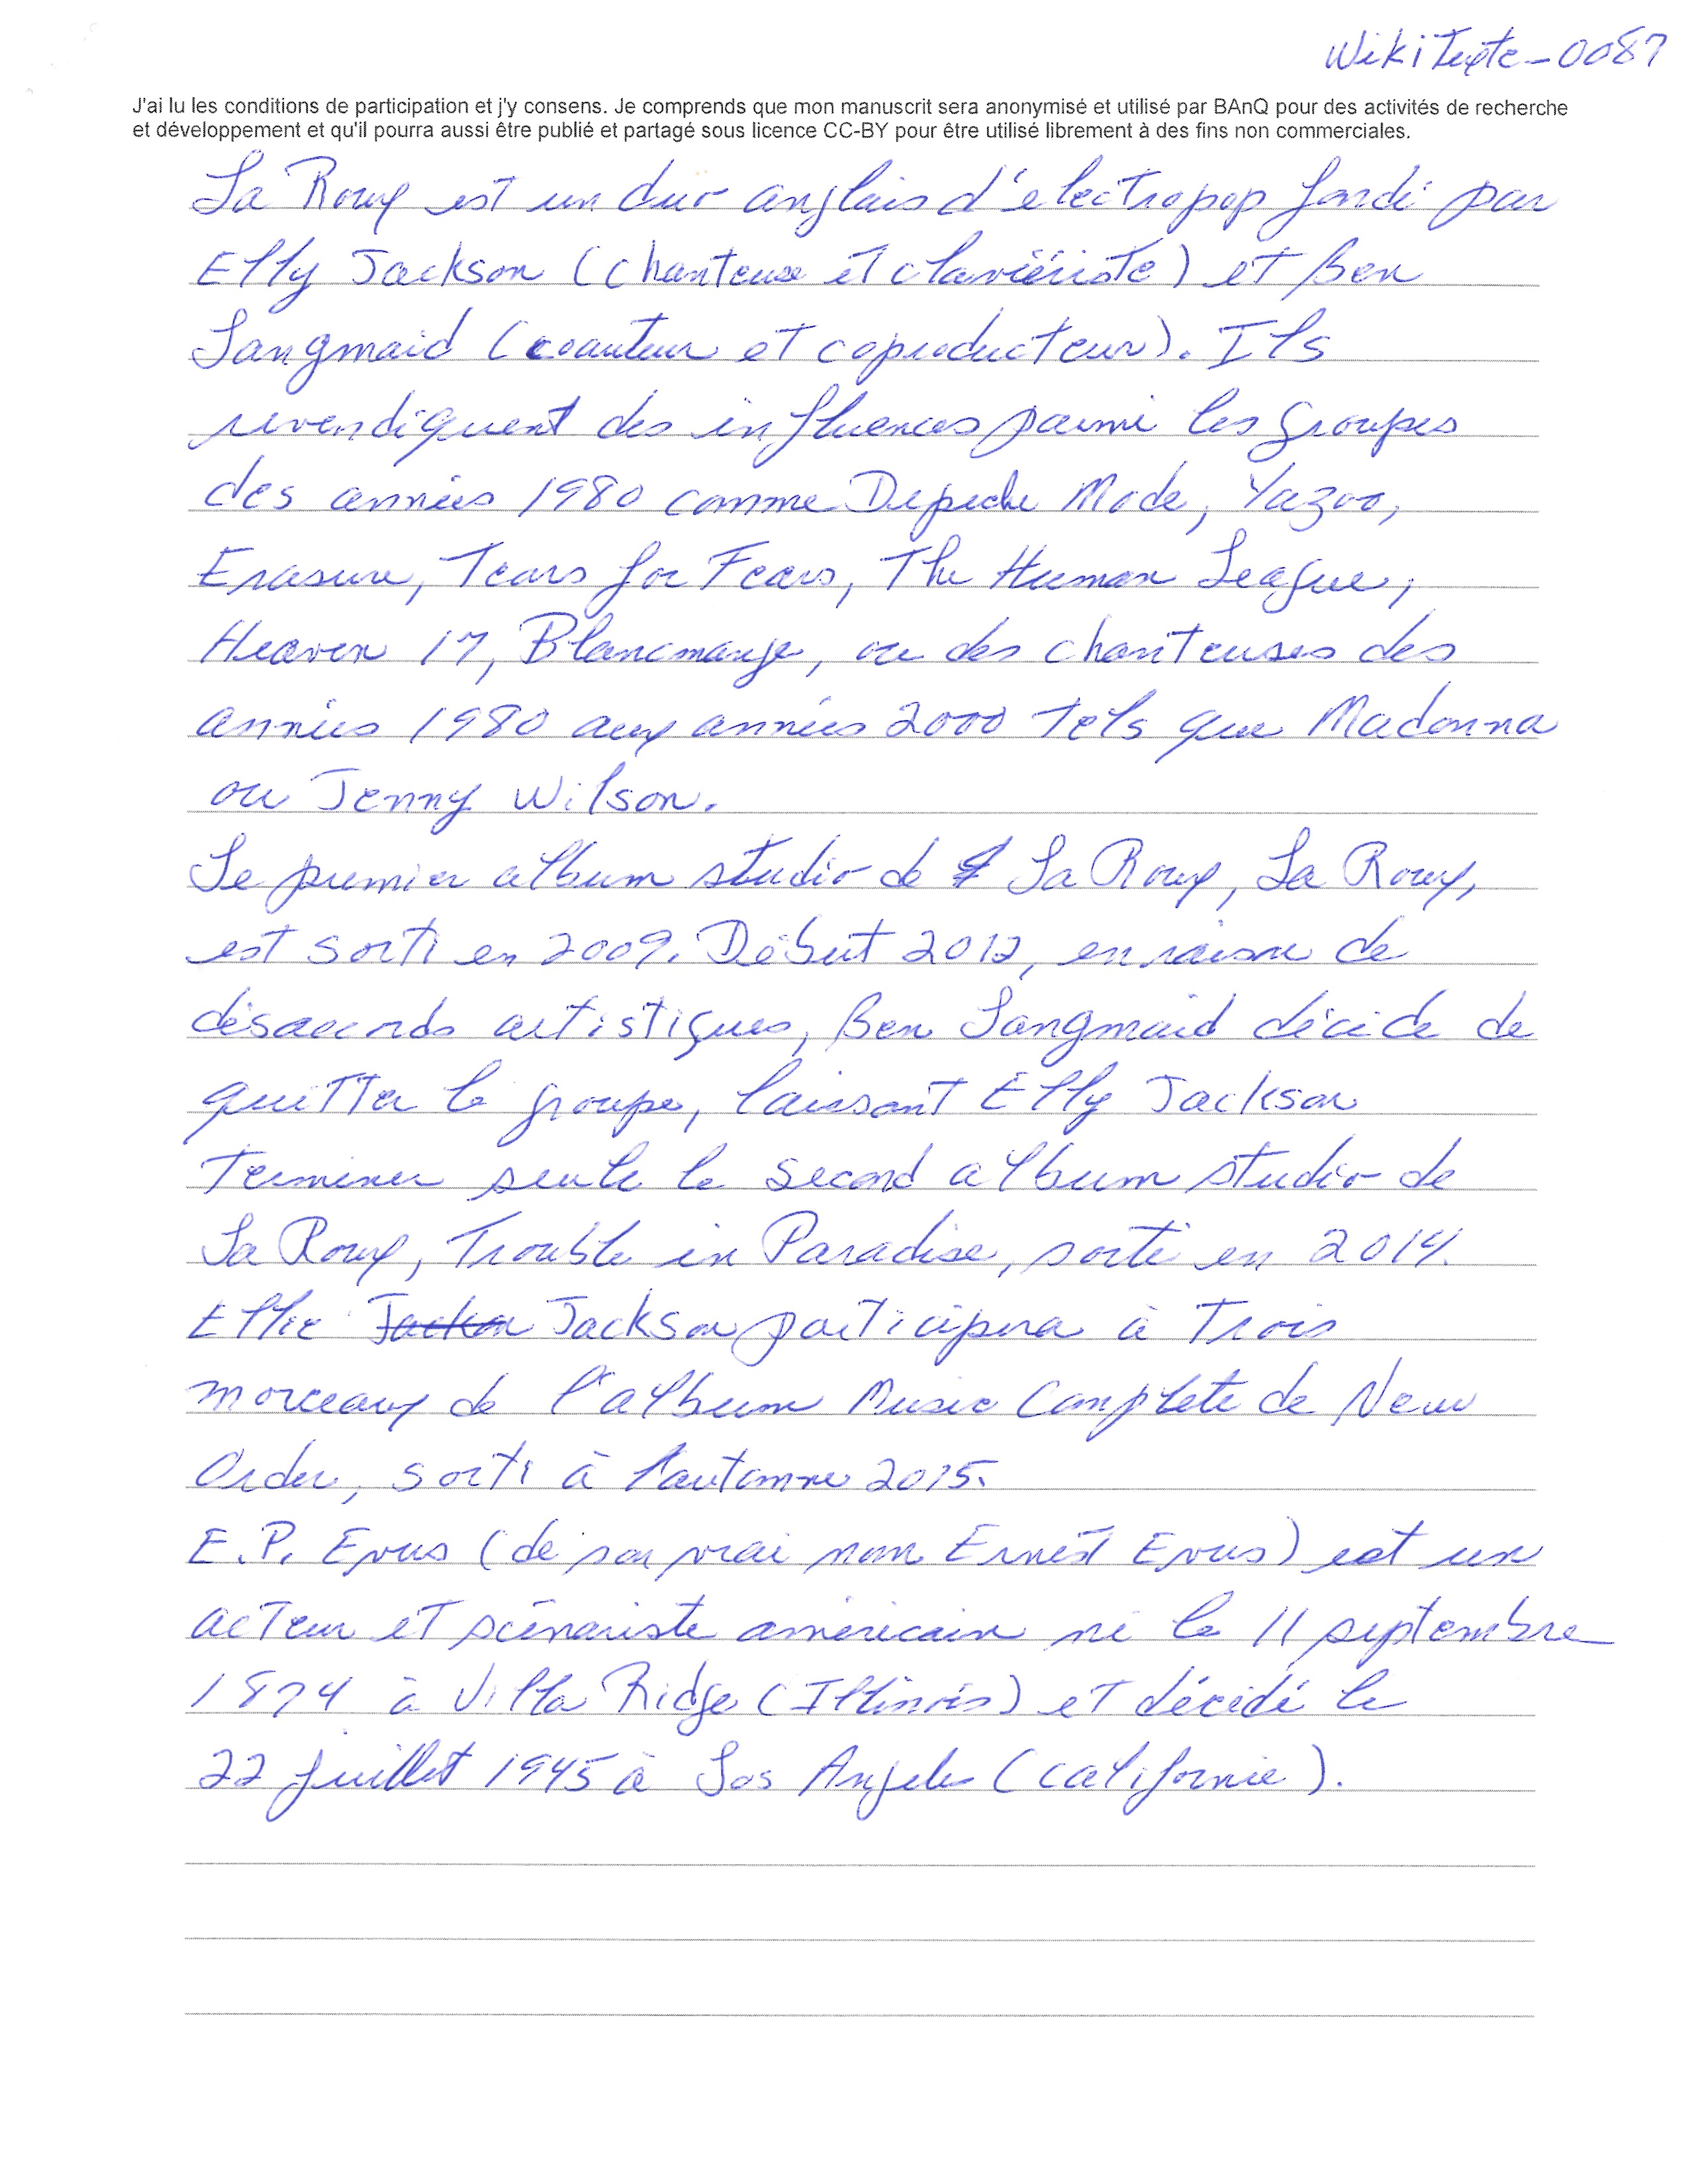 WikiTexte-0087
J'ai lu les conditions de participation et j'y consens. Je comprends que mon manuscrit sera anonymisé et utilisé par BAnQ pour des activités de recherche
et développement et qu'il pourra aussi être publié et partagé sous licence CC-BY pour être utilisé librement à des fins non commerciales.
La Roux est un duo anglais d'électropop fondé par
Elly Jackson (chanteuse et claviériste) et Ben
Langmaid (coauteur et coproducteur). Ils
revendiquent des influences parmi les groupes
des années 1980 comme Depeche Mode, Yazoo,
Erasure, Tears for Fears, The Human League,
Heaven 17, Blancmange, ou des chanteuses des
années 1980 aux années 2000 tels que Madonna
ou Jenny Wilson.
Le premier album studio de La Roux, La Roux,
est sorti en 2009. Début 2012, en raison de
désaccords artistiques, Ben Langmaid décide de
quitter le groupe, laissant Elly Jackson
terminer seule le second album studio de
La Roux, Trouble in Paradise, sorti en 2014.
Ellie Jackson participera à trois
morceaux de l'album Music Complete de New
Order, sorti à l'automne 2015.
E.P. Evus (de son vrai nom Ernest Evus) est un
acteur et scénariste américain né le 11 septembre
1874 à Villa Ridge (Illinois) et décédé le
22 juillet 1945 à Los Angeles (Californie).